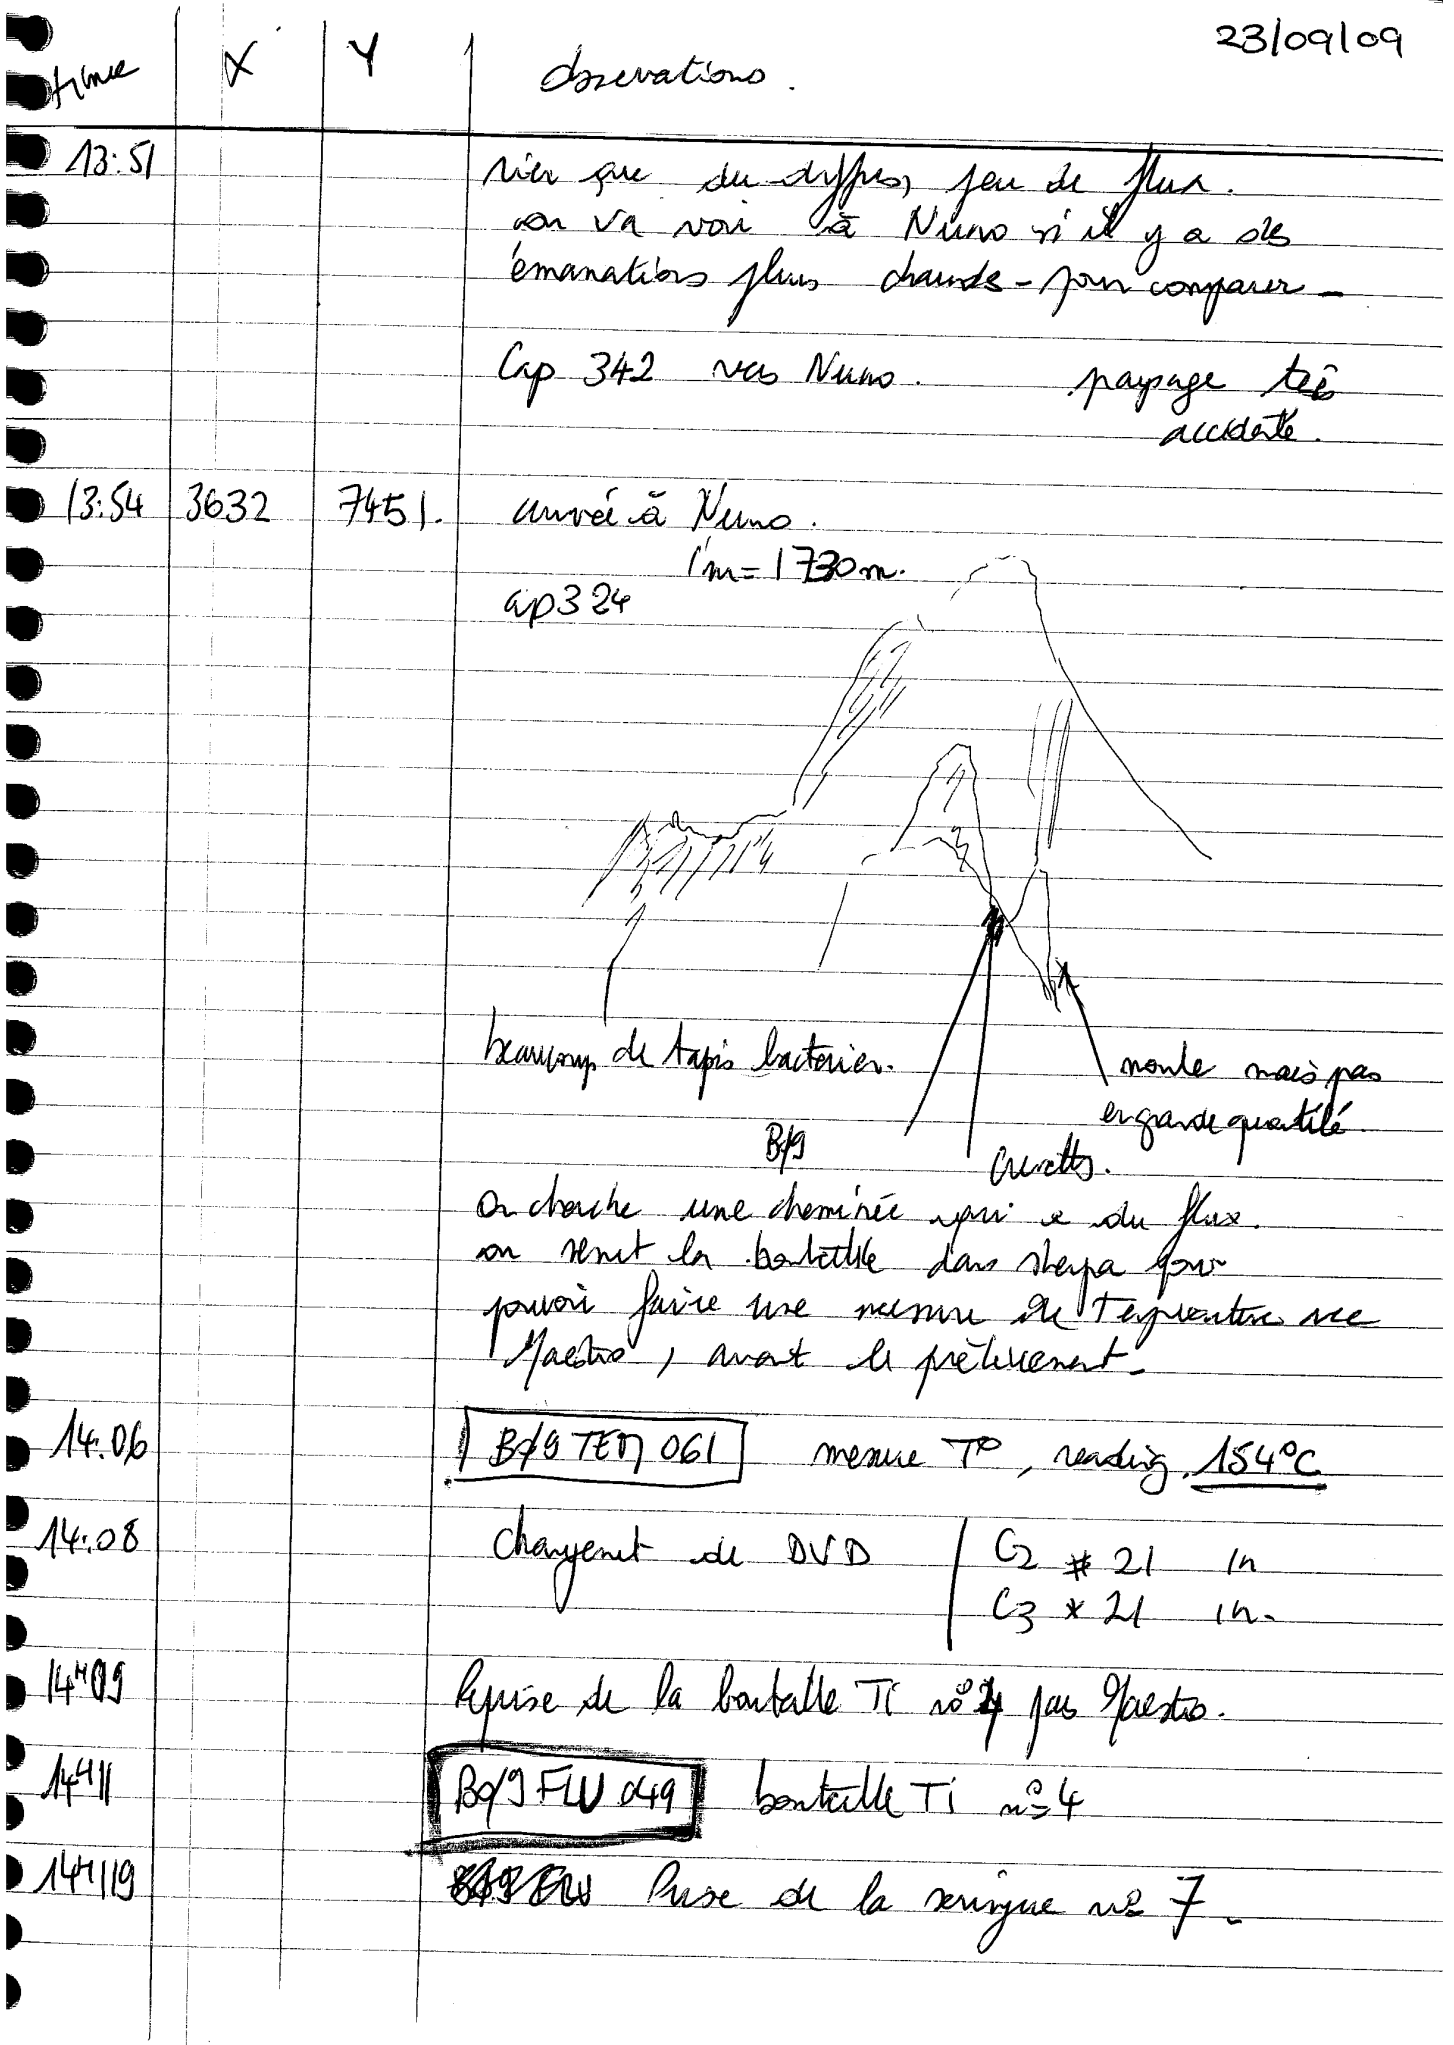 23/09/09
time X Y observations.
13:51 rien que du diffus, peu de flux.
on va voir à Nuno si il y a des
émanations plus chaudes - pour comparer -
Cap 342 vers Nuno. paysage très
accidenté.
13:54 3632 7451. arrivée à Nuno.
im = 1730m.
cap 324
beaucoup de tapis bactérien.
moule mais pas
en grande quantité.
Bφ9
crevettes.
On cherche une cheminée qui a du flux.
on remet la bouteille dans sherpa pour
pouvoir faire une mesure de Température avec
Maestro, avant le prélèvement.
14:06 Bφ9 TEM 061 mesure T°, reading 154°C
14:08 Changement de DVD C2 # 21 in
C3 * 21 in.
14H09 Reprise de la bouteille Ti n°4 par Maestro.
14H11 Bφ9 FLU 049 bouteille Ti n°4
14H19 Prise de la seringue n° 7.